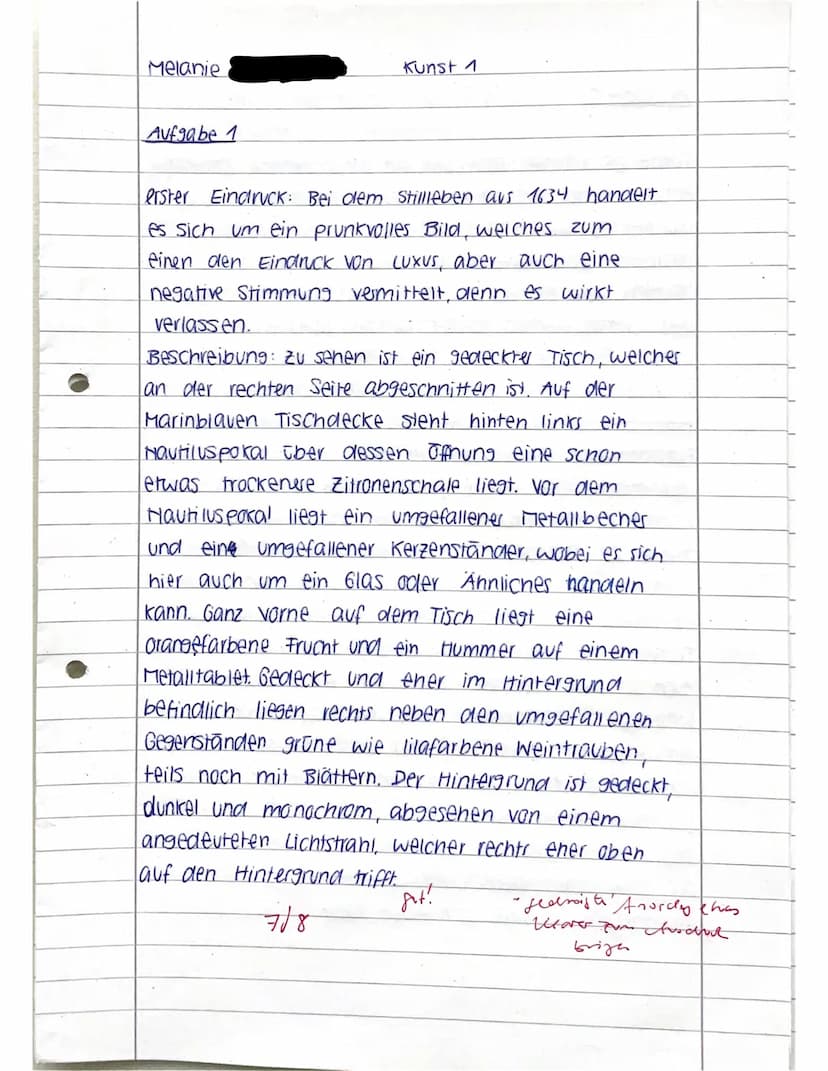 Melanie Kunst 1
Aufgabe 1
erster Eindruck: Bei dem Stillleben aus 1634 handelt
es sich um ein prunkvolles Bild, welches zum
einen den Eindruck von Luxus, aber auch eine
negative Stimmung vermittelt, denn es wirkt
verlassen.
Beschreibung: Zu sehen ist ein gedeckter Tisch, welcher
an der rechten Seite abgeschnitten ist. Auf der
Marinblauen Tischdecke steht hinten links ein
Nautiluspokal über dessen Öffnung eine schon
etwas trockenere Zitronenschale liegt. Vor dem
Nautiluspokal liegt ein umgefallener Metallbecher
und ein umgefallener Kerzenständer, wobei es sich
hier auch um ein Glas oder Ähnliches handeln
kann. Ganz vorne auf dem Tisch liegt eine
orangefarbene Frucht und ein Hummer auf einem
Metalltablet. Gedeckt und eher im Hintergrund
befindlich liegen rechts neben den umgefallenen
Gegenständen grüne wie lilafarbene Weintrauben,
teils noch mit Blättern. Der Hintergrund ist gedeckt,
dunkel und monochrom, abgesehen von einem
angedeuteten Lichtstrahl, welcher rechts eher oben
auf den Hintergrund trifft.
gut!
7/8
Anordng etwas
klarer zum Ausdruck
bringen